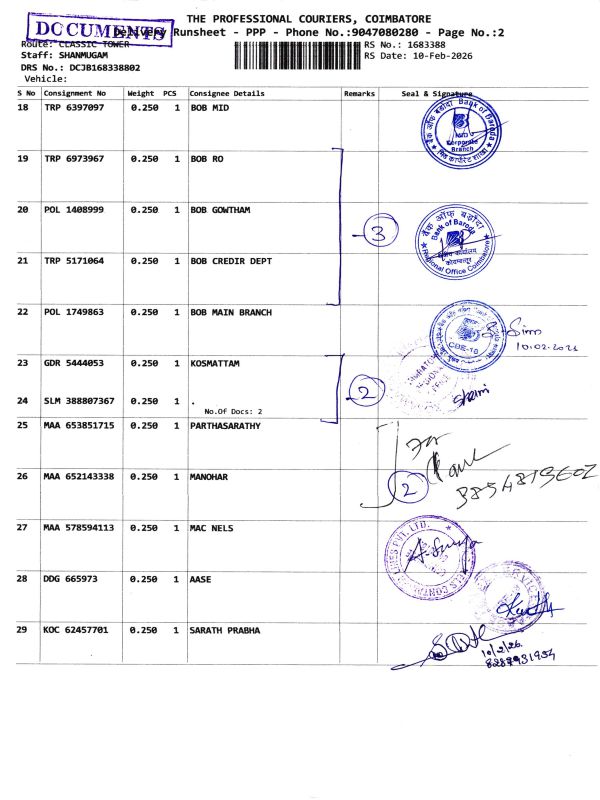 THE PROFESSIONAL COURIERS, COIMBATORE
DOCUMENTS
Delivery Runsheet - PPP - Phone No.:9047080280 - Page No.:2
Route: CLASSIC TOWER
RS No.: 1683388
Staff: SHANMUGAM
RS Date: 10-Feb-2026
DRS No.: DCJB168338802
Vehicle:
S No Consignment No Weight PCS Consignee Details Remarks Seal & Signature
18 TRP 6397097 0.250 1 BOB MID
बैंक ऑफ़ बड़ौदा Bank of Baroda
Corporate
Branch
19 TRP 6973967 0.250 1 BOB RO
20 POL 1408999 0.250 1 BOB GOWTHAM
3
बैंक ऑफ़ बड़ौदा
Bank of Baroda
क्षेत्रीय कार्यालय
कोयम्बत्तूर
Regional Office Coimbatore
21 TRP 5171064 0.250 1 BOB CREDIR DEPT
22 POL 1749863 0.250 1 BOB MAIN BRANCH
CBE-18
10.02.2026
23 GDR 5444053 1 0.250 KOSMATTAM
2
24 SLM 388807367 0.250 1 .
No.Of Docs: 2
25 MAA 653851715 0.250 1 PARTHASARATHY
For
26 MAA 652143338 0.250 1 MANOHAR
2
27 MAA 578594113 0.250 1 MAC NELS
LINES PVT. LTD.
28 DDG 665973 0.250 1 AASE
29 KOC 62457701 0.250 1 SARATH PRABHA
10/2/26.